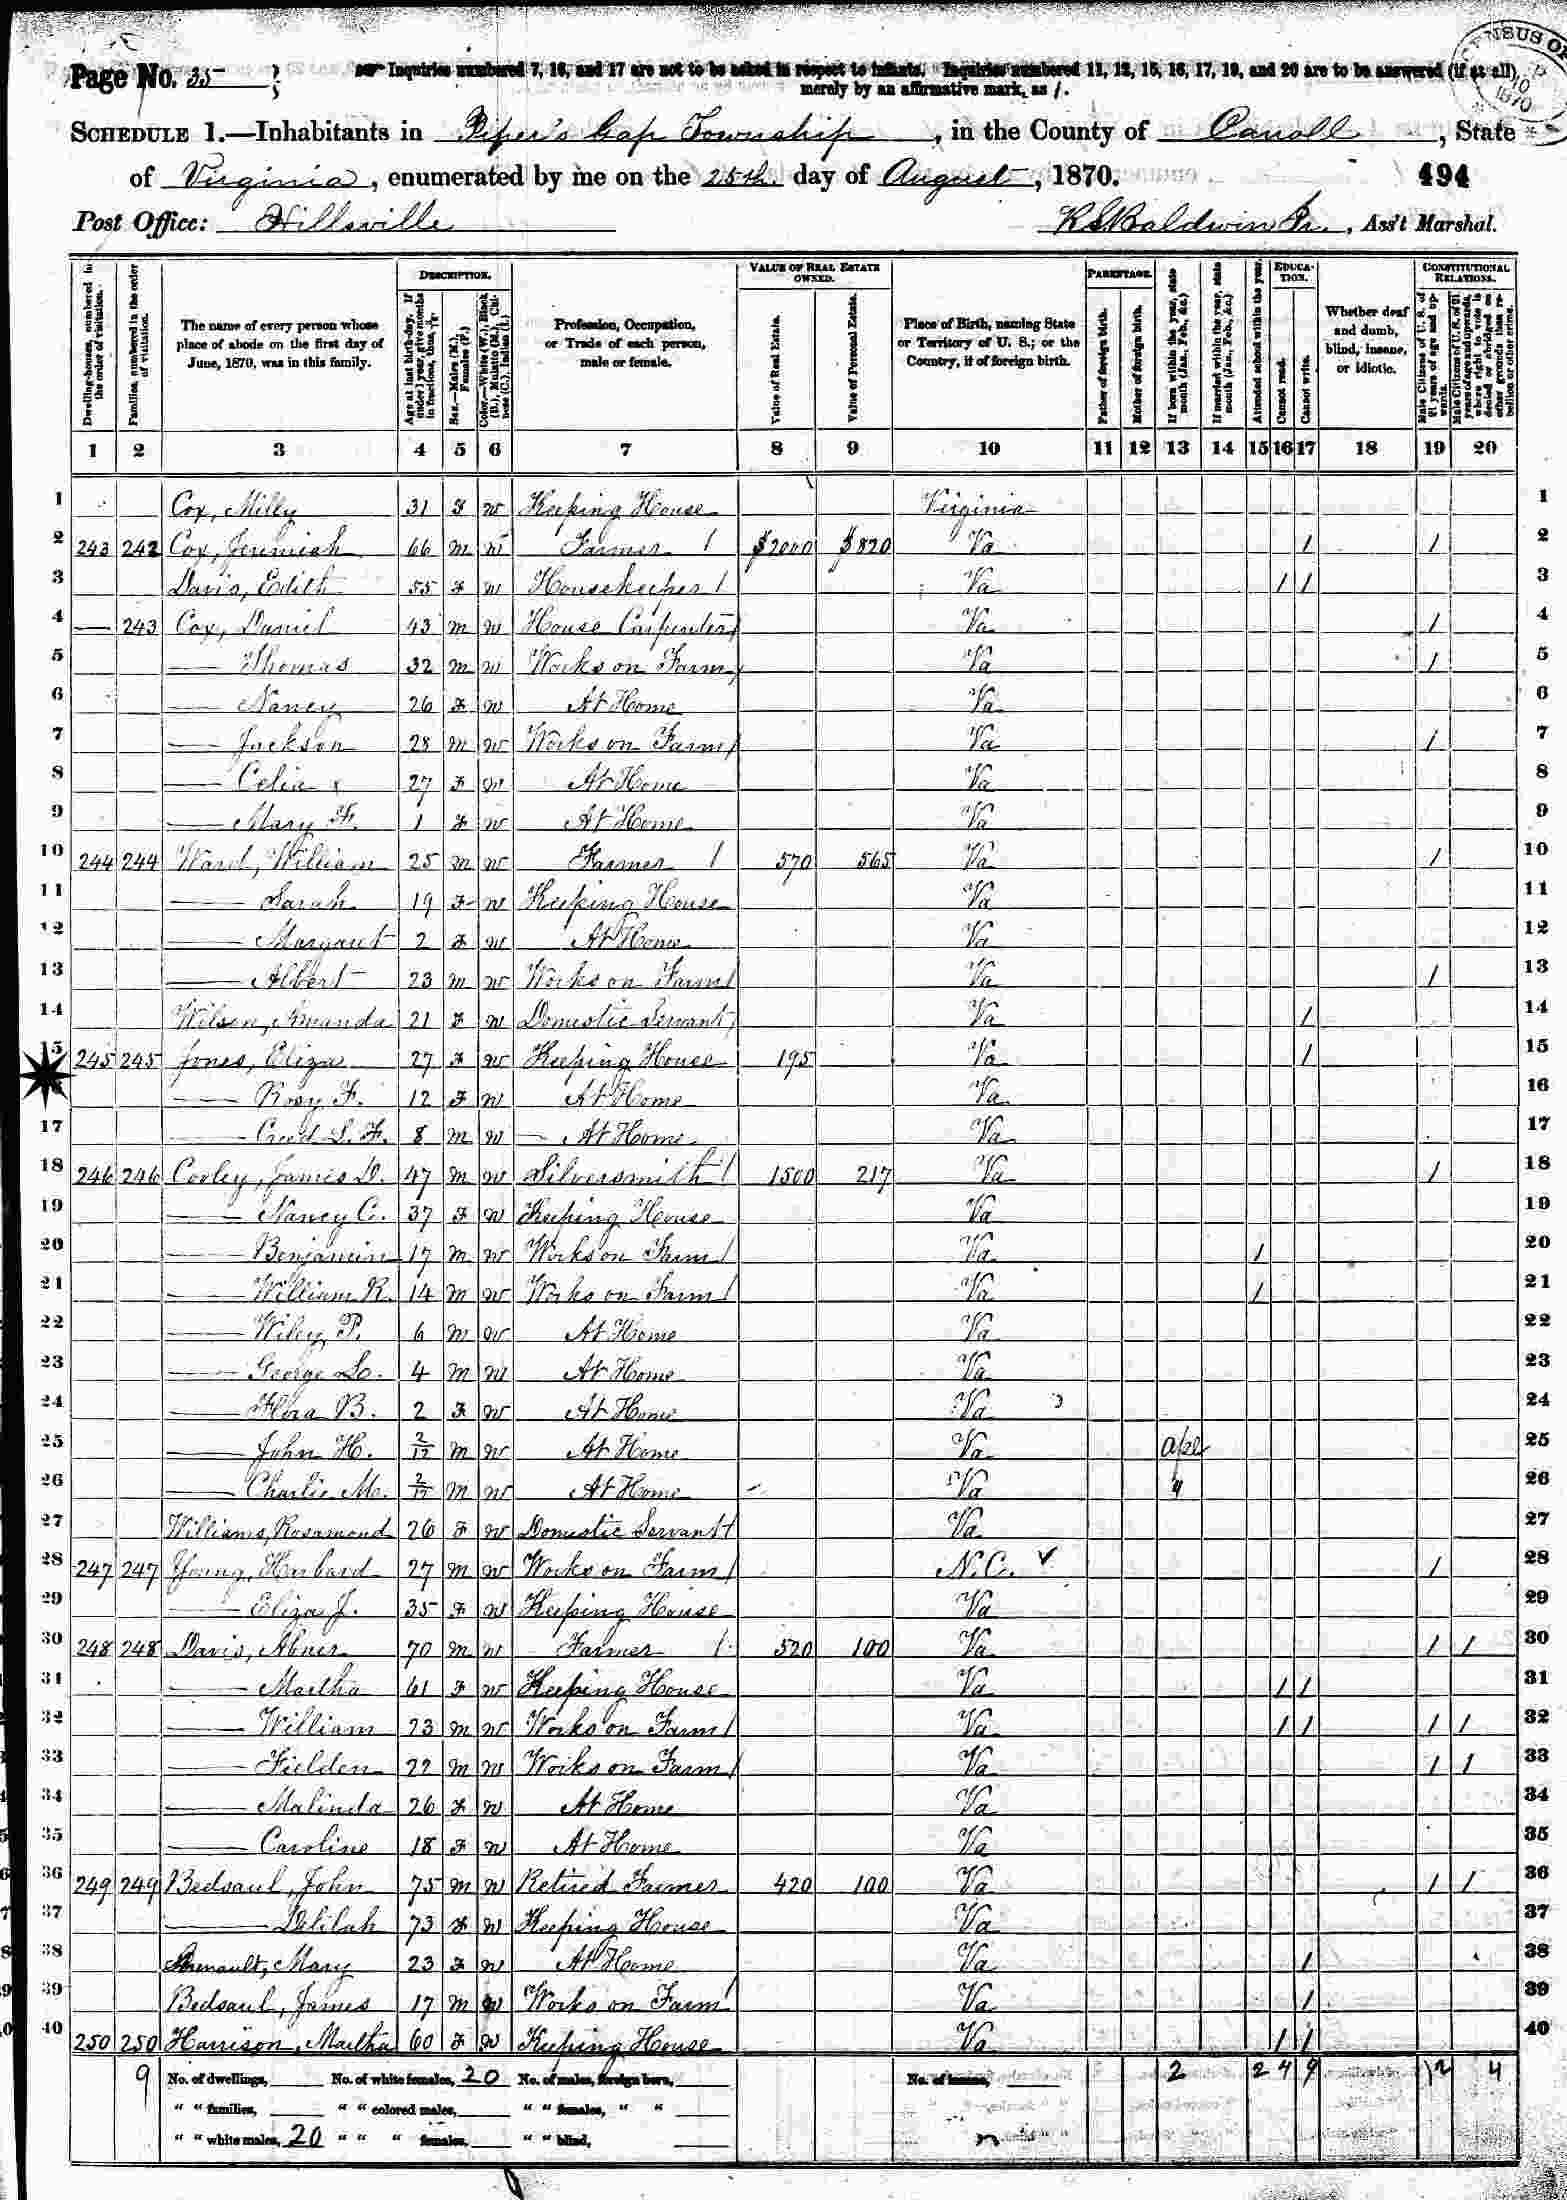 Page No. 35
Inquiries numbered 7, 16, and 17 are not to be asked in respect to infants. Inquiries numbered 11, 12, 15, 16, 17, 19, and 20 are to be answered (if at all)
merely by an affirmative mark, as /.
CENSUS OF
1870
SCHEDULE 1.—Inhabitants in Piper's Gap Township, in the County of Carroll, State
of Virginia, enumerated by me on the 25th day of August, 1870.
494
Post Office: Hillsville
Baldwin Jr., Ass't Marshal.
Dwelling-houses, numbered in the order of visitation.
Families, numbered in the order of visitation.
The name of every person whose place of abode on the first day of June, 1870, was in this family.
DESCRIPTION.
Age at last birth-day. If under 1 year, give months in fractions, thus,
Sex.—Males (M.), Females (F.)
Color.—White (W.), Black (B.), Mulatto (M.), Chinese (C.), Indian (I.)
Profession, Occupation, or Trade of each person, male or female.
VALUE OF REAL ESTATE OWNED.
Value of Real Estate.
Value of Personal Estate.
Place of Birth, naming State or Territory of U. S.; or the Country, if of foreign birth.
PARENTAGE.
Father of foreign birth.
Mother of foreign birth.
If born within the year, state month (Jan., Feb., &c.)
If married within the year, state month (Jan., Feb., &c.)
Attended school within the year.
EDUCATION.
Cannot read.
Cannot write.
Whether deaf and dumb, blind, insane, or idiotic.
CONSTITUTIONAL RELATIONS.
Male Citizens of U. S. of 21 years of age and upwards.
Male Citizens of U. S. of 21 years of age and upwards, where right to vote is denied or abridged on other grounds than rebellion or other crime.
1 2 3 4 5 6 7 8 9 10 11 12 13 14 15 16 17 18 19 20
1 Cox, Milly 31 F W Keeping House Virginia 1
2 243 242 Cox, Jeremiah 66 M W Farmer / $2000 $820 Va / / 2
3 Davis, Edith 55 F W Housekeeper / Va / / 3
4 — 243 Cox, Daniel 43 M W House Carpenter / Va / 4
5 — Thomas 32 M W Works on Farm / Va / 5
6 — Nancy 26 F W At Home Va 6
7 — Jackson 28 M W Works on Farm / Va / 7
8 — Celia 27 F W At Home Va 8
9 — Mary F. 1 F W At Home Va 9
10 244 244 Ward, William 25 M W Farmer / 570 565 Va / 10
11 — Sarah 19 F W Keeping House Va 11
12 — Margaret 2 F W At Home Va 12
13 — Albert 23 M W Works on Farm / Va / 13
14 Wilson, Amanda 21 F W Domestic Servant / Va / 14
15 245 245 Jones, Eliza 27 F W Keeping House 195 Va / 15
— Rosy F. 12 F W At Home Va 16
17 — Creed L. F. 8 M W — At Home Va 17
18 246 246 Cooley, James D. 47 M W Silversmith / 1500 217 Va / 18
19 — Nancy C. 37 F W Keeping House Va 19
20 — Benjamin 17 M W Works on Farm / Va / 20
21 — William R. 14 M W Works on Farm / Va / 21
22 — Wiley P. 6 M W At Home Va 22
23 — George L. 4 M W At Home Va 23
24 — Flora B. 2 F W At Home Va 24
25 — John H. 2/12 M W At Home Va Apl 25
26 — Charlie M. 2/12 M W At Home Va " 26
27 Williams, Rosamond 26 F W Domestic Servant / Va 27
28 247 247 Young, Harbard 27 M W Works on Farm / N.C. / 28
29 — Eliza J. 35 F W Keeping House Va 29
30 248 248 Davis, Abner 70 M W Farmer / 520 100 Va / / 30
31 — Martha 61 F W Keeping House Va / / 31
32 — William 23 M W Works on Farm / Va / / / / 32
33 — Fielden 22 M W Works on Farm / Va / / 33
34 — Malinda 26 F W At Home Va 34
35 — Caroline 18 F W At Home Va 35
36 249 249 Bedsaul, John 75 M W Retired Farmer 420 100 Va / / 36
37 — Delilah 73 F W Keeping House Va 37
38 Mary 23 F W At Home Va / 38
39 Bedsaul, James 17 M W Works on Farm / Va / 39
40 250 250 Harrison, Martha 60 F W Keeping House Va / / 40
9 No. of dwellings, No. of white females, 20 No. of males, foreign born, No. of insane, 2 2 4 9 12 4
" " families, " " colored males, " " females, " "
" " white males, 20 " " " females, " " blind,